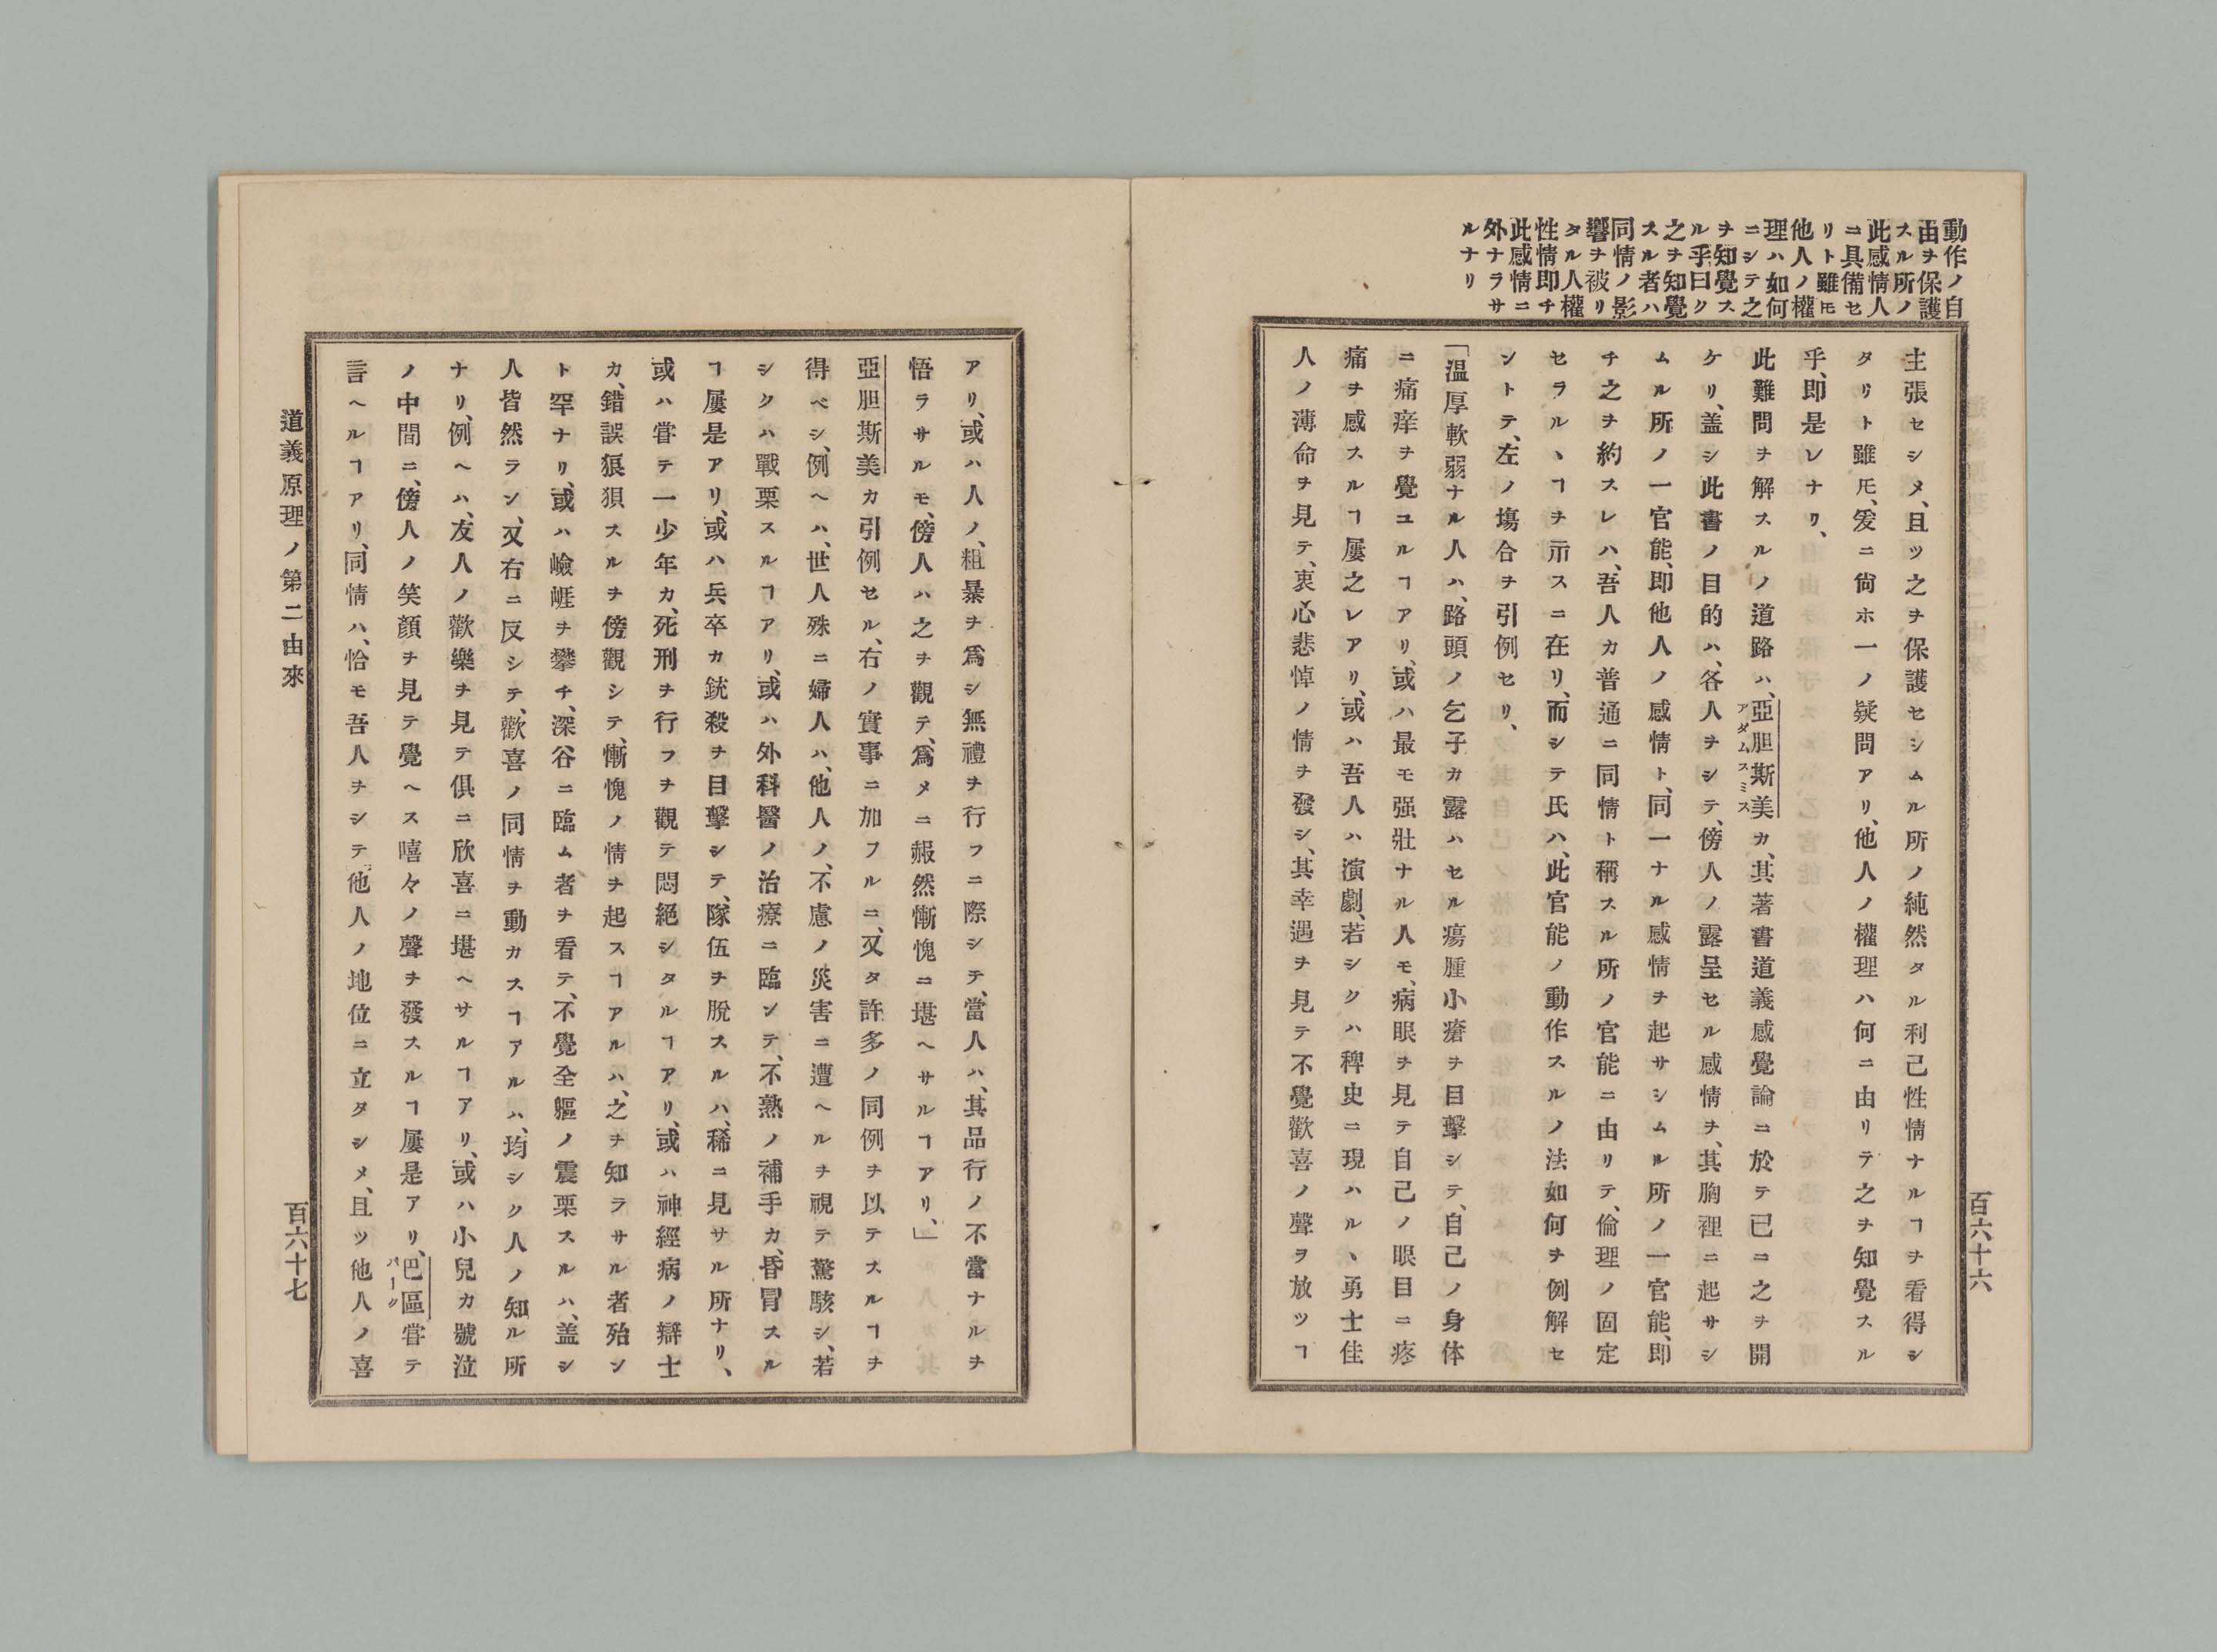 動作ノ自
由ヲ保護
スル所ノ
此感情人
ニ具備セ
リト雖𪜈
他人ノ權
理ハ如何
ニシテ之
ヲ知覺ス
ル乎曰ク
之ヲ知覺
スル者ハ
同情ノ影
響ヲ被リ
タル人權
性情即チ
此感情ニ
外ナラサ
ルナリ
主張セシメ、且ツ之ヲ保護セシムル所ノ純然タル利己性情ナルヿヲ看得シ
タリト雖𪜈、爰ニ尙ホ一ノ疑問アリ、他人ノ權理ハ何ニ由リテ之ヲ知覺スル
乎、即是レナリ、
此難問ヲ解スルノ道路ハ、亞胆斯美カ、其著書道義感覺論ニ於テ已ニ之ヲ開
アダムスミス
ケリ、盖シ此書ノ目的ハ、各人ヲシテ、傍人ノ露呈セル感情ヲ、其胸裡ニ起サシ
ムル所ノ一官能、即他人ノ感情ト、同一ナル感情ヲ起サシムル所ノ一官能、即
チ之ヲ約スレハ、吾人カ普通ニ同情ト稱スル所ノ官能ニ由リテ、倫理ノ固定
セラルヽヿヲ示スニ在リ、而シテ氏ハ、此官能ノ動作スルノ法如何ヲ例解セ
ントテ、左ノ塲合ヲ引例セリ、
「温厚軟弱ナル人ハ、路頭ノ乞子カ露ハセル瘍腫小瘡ヲ目擊シテ、自己ノ身体
ニ痛痒ヲ覺ユルヿアリ、或ハ最モ强壯ナル人モ、病眼ヲ見テ自己ノ眼目ニ疼
痛ヲ感スルヿ屢之レアリ、或ハ吾人ハ演劇、若シクハ稗史ニ現ハルヽ勇士佳
人ノ薄命ヲ見テ、衷心悲悼ノ情ヲ發シ、其幸遇ヲ見テ不覺歡喜ノ聲ヲ放ツヿ
百六十六
アリ、或ハ人ノ、粗暴ヲ爲シ無禮ヲ行フニ際シテ、當人ハ、其品行ノ不當ナルヲ
悟ラサルモ、傍人ハ之ヲ觀テ、爲メニ赧然慚愧ニ堪ヘサルヿアリ、」
亞胆斯美カ引例セル、右ノ實事ニ加フルニ、又タ許多ノ同例ヲ以テスルヿヲ
得ベシ、例ヘハ、世人殊ニ婦人ハ、他人ノ、不慮ノ災害ニ遭ヘルヲ視テ驚駭シ、若
シクハ戰栗スルヿアリ、或ハ外科醫ノ治療ニ臨ンテ、不熟ノ補手カ、昏冒スル
ヿ屢是アリ、或ハ兵卒カ銃殺ヲ目擊シテ、隊伍ヲ脫スルハ、稀ニ見サル所ナリ、
或ハ甞テ一少年カ、死刑ヲ行フヲ觀テ悶絕シタルヿアリ、或ハ神經病ノ辯士
カ、錯誤狼狽スルヲ傍觀シテ、慚愧ノ情ヲ起スヿアルハ、之ヲ知ラサル者殆ン
ト罕ナリ、或ハ嶮崕ヲ攀チ、深谷ニ臨ム者ヲ看テ、不覺全軀ノ震栗スルハ、盖シ
人皆然ラン、又右ニ反シテ、歡喜ノ同情ヲ動カスヿアルハ、均シク人ノ知ル所
ナリ、例ヘハ、友人ノ歡樂ヲ見テ俱ニ欣喜ニ堪ヘサルヿアリ、或ハ小兒カ號泣
ノ中間ニ、傍人ノ笑顔ヲ見テ覺ヘス嘻々ノ聲ヲ發スルヿ屢是アリ、巴區甞テ
バーク
言ヘルヿアリ、同情ハ、恰モ吾人ヲシテ他人ノ地位ニ立タシメ、且ツ他人ノ喜
道義原理ノ第二由來
百六十七